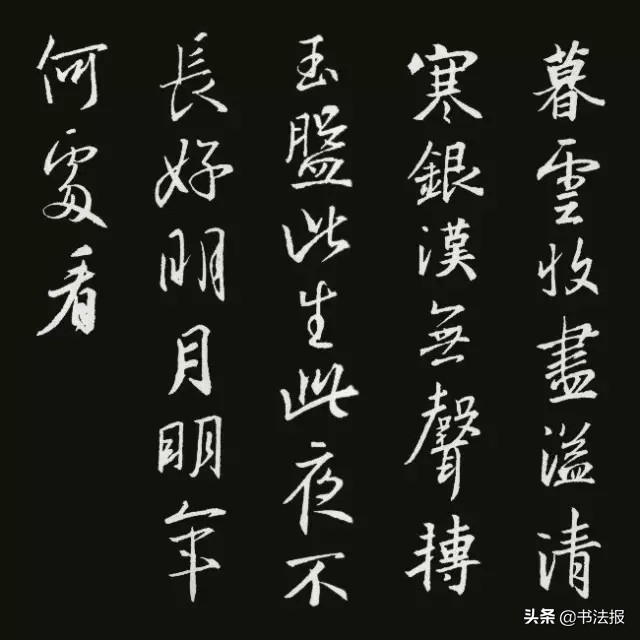 暮雲收盡溢清
寒銀漢無聲摶
玉盤此生此夜不
長好明月明年
何處看
头条 @书法报